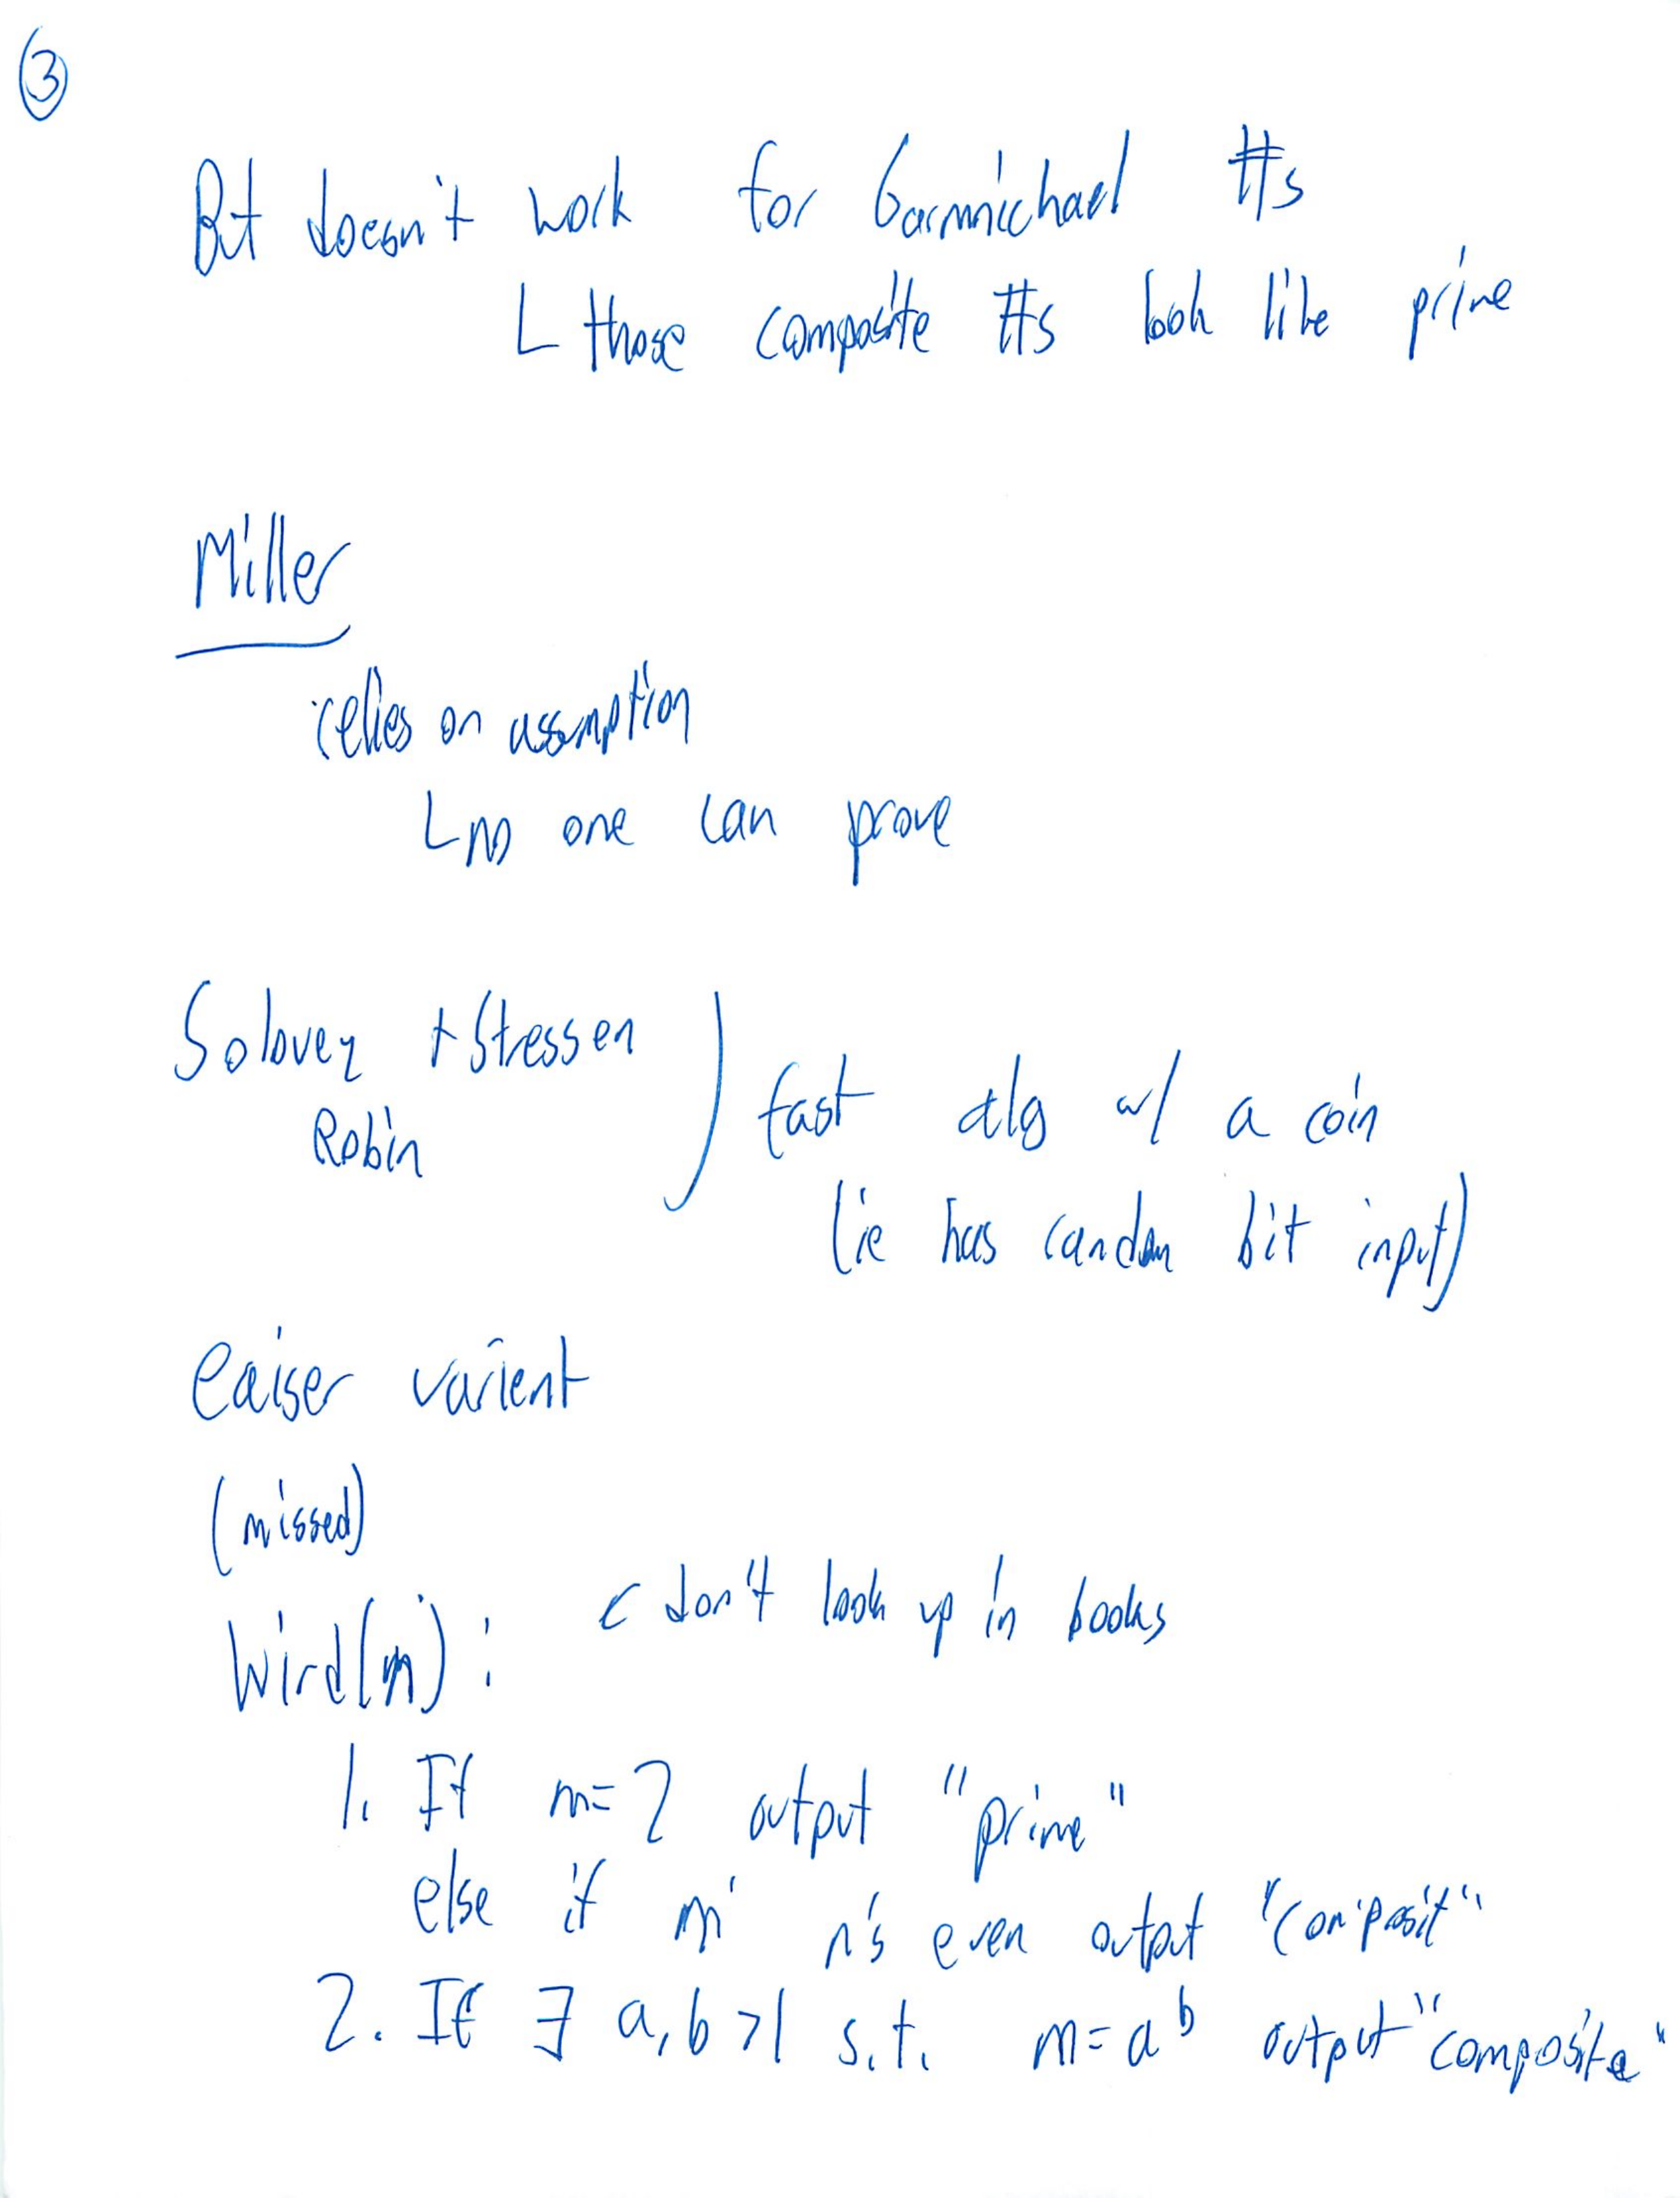 3
But doesn't work for Carmnichael #s
L those composite #s look like prime
Miller
relies on assumption
L no one can prove
Solovey + Stressen
Robin
fast alg w/ a coin
(ie has random bit input)
Eaiser varient
(missed)
Wird(m): < don't look up in books
1. If m=2 output "prime"
else if m is even output "composit"
2. If ∃ a,b >1 s.t. m=a^b output "composite"